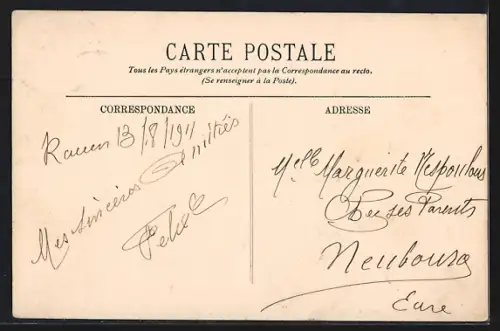 CARTE POSTALE
Tous les Pays étrangers n'acceptent pas la Correspondance au recto.
(Se renseigner à la Poste).
CORRESPONDANCE
Rouen 13/8/1911
Mes sincères Amitiés
ADRESSE
Melle Marguerite
Chez ses Parents
Neubourg
Eure